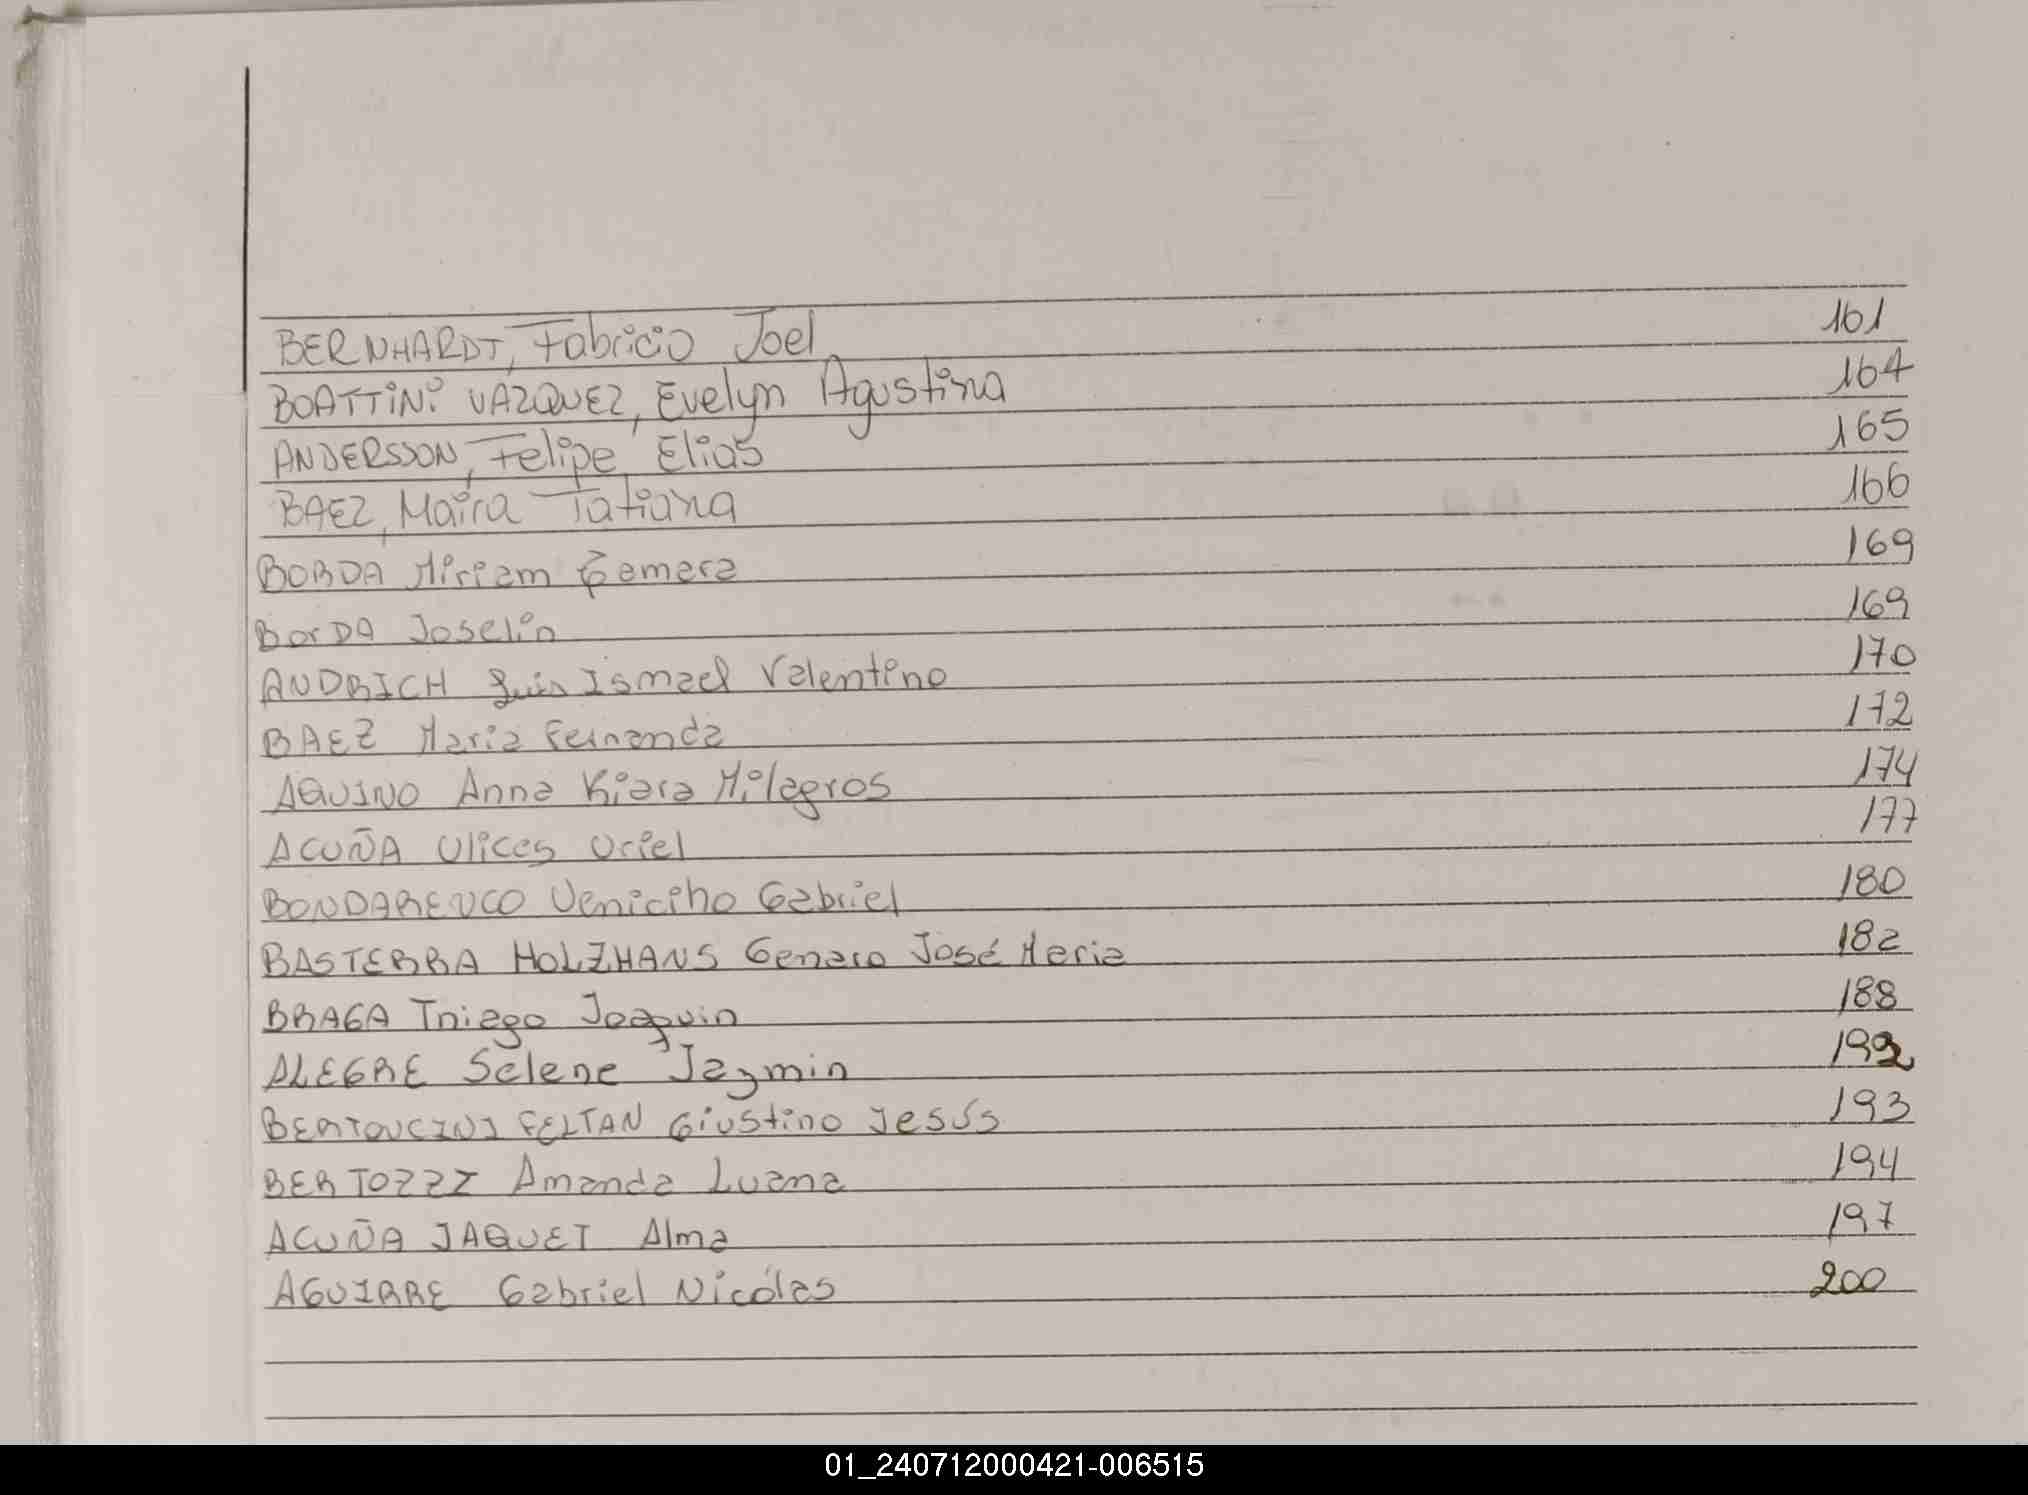 BERNHARDT, Fabricio Joel 161
BOATTINI VAZQUEZ, Evelyn Agustina 164
ANDERSSON, Felipe Elias 165
BAEZ, Maira Tatiana 166
BORDA Miriam 169
BorDA Joselin 169
ANDRICH Luis Ismael Valentino 170
BAEZ Maria Fernanda 172
AQUINO Anna Kiara Milagros 174
ACUÑA Ulices Uriel 177
BONDARENCO Gabriel 180
BASTERRA HOLZHANS Genaro José Maria 182
BRAGA Joaquin 188
ALEGRE Selene Jazmin 192
FELTAN Giustino Jesús 193
BERTOZZI Amanda Luana 194
ACUÑA JAQUET Alma 197
AGUIRRE Gabriel Nicólas 200
01_240712000421-006515